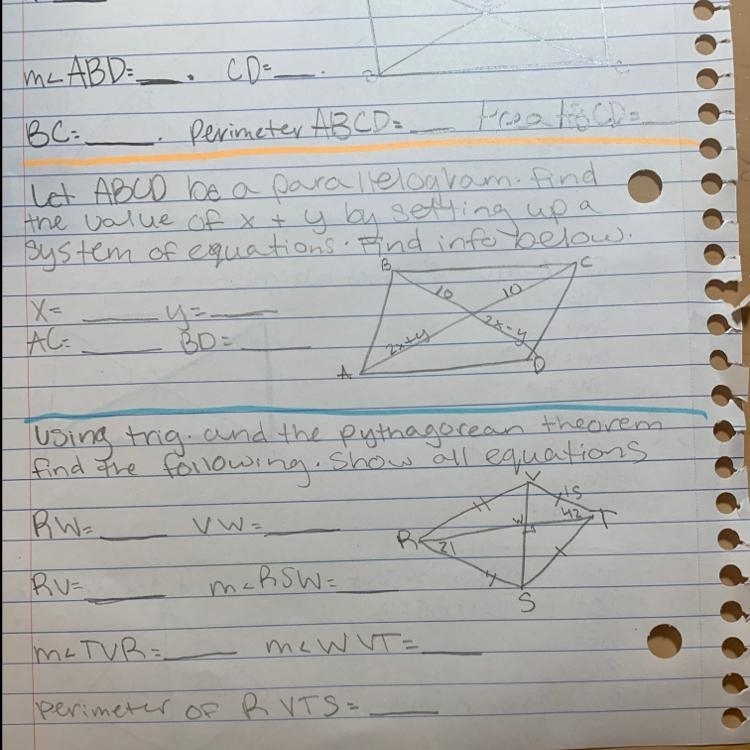 m<ABD=___. CD=___.
BC=____. Perimeter ABCD=___ Area ABCD=___
Let ABCD be a parallelogram. Find
the value of x + y by setting up a
system of equations. Find info below.
B C
10 10
X= ____ y= ____
AC= ____ BD= ____
2x+y 2x-y
A D
Using trig. and the pythagorean theorem
find the following. Show all equations
V
15
RW= ____ VW= ____
W 42 T
R 21
RV= ____ m<RSW= ____
S
m<TVR= ____ m<WVT= ____
perimeter of RVTS= ____